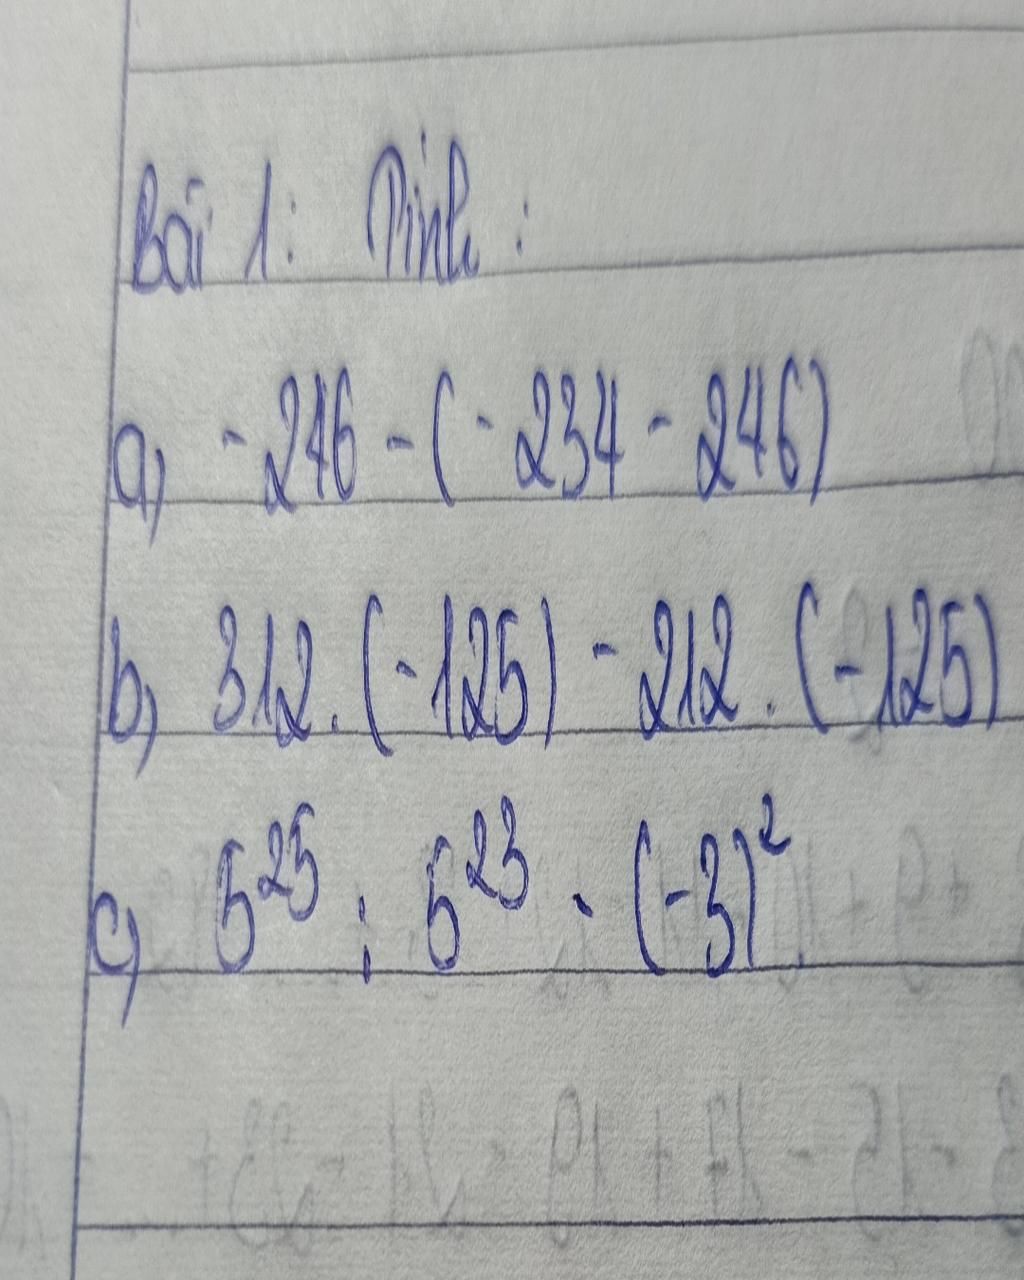 Bài 1: Tính :
a) -246 - ( -234 - 246)
b) 312. (-125) - 212 . (-125)
c) 5²⁵ : 5²³ - (-3)²